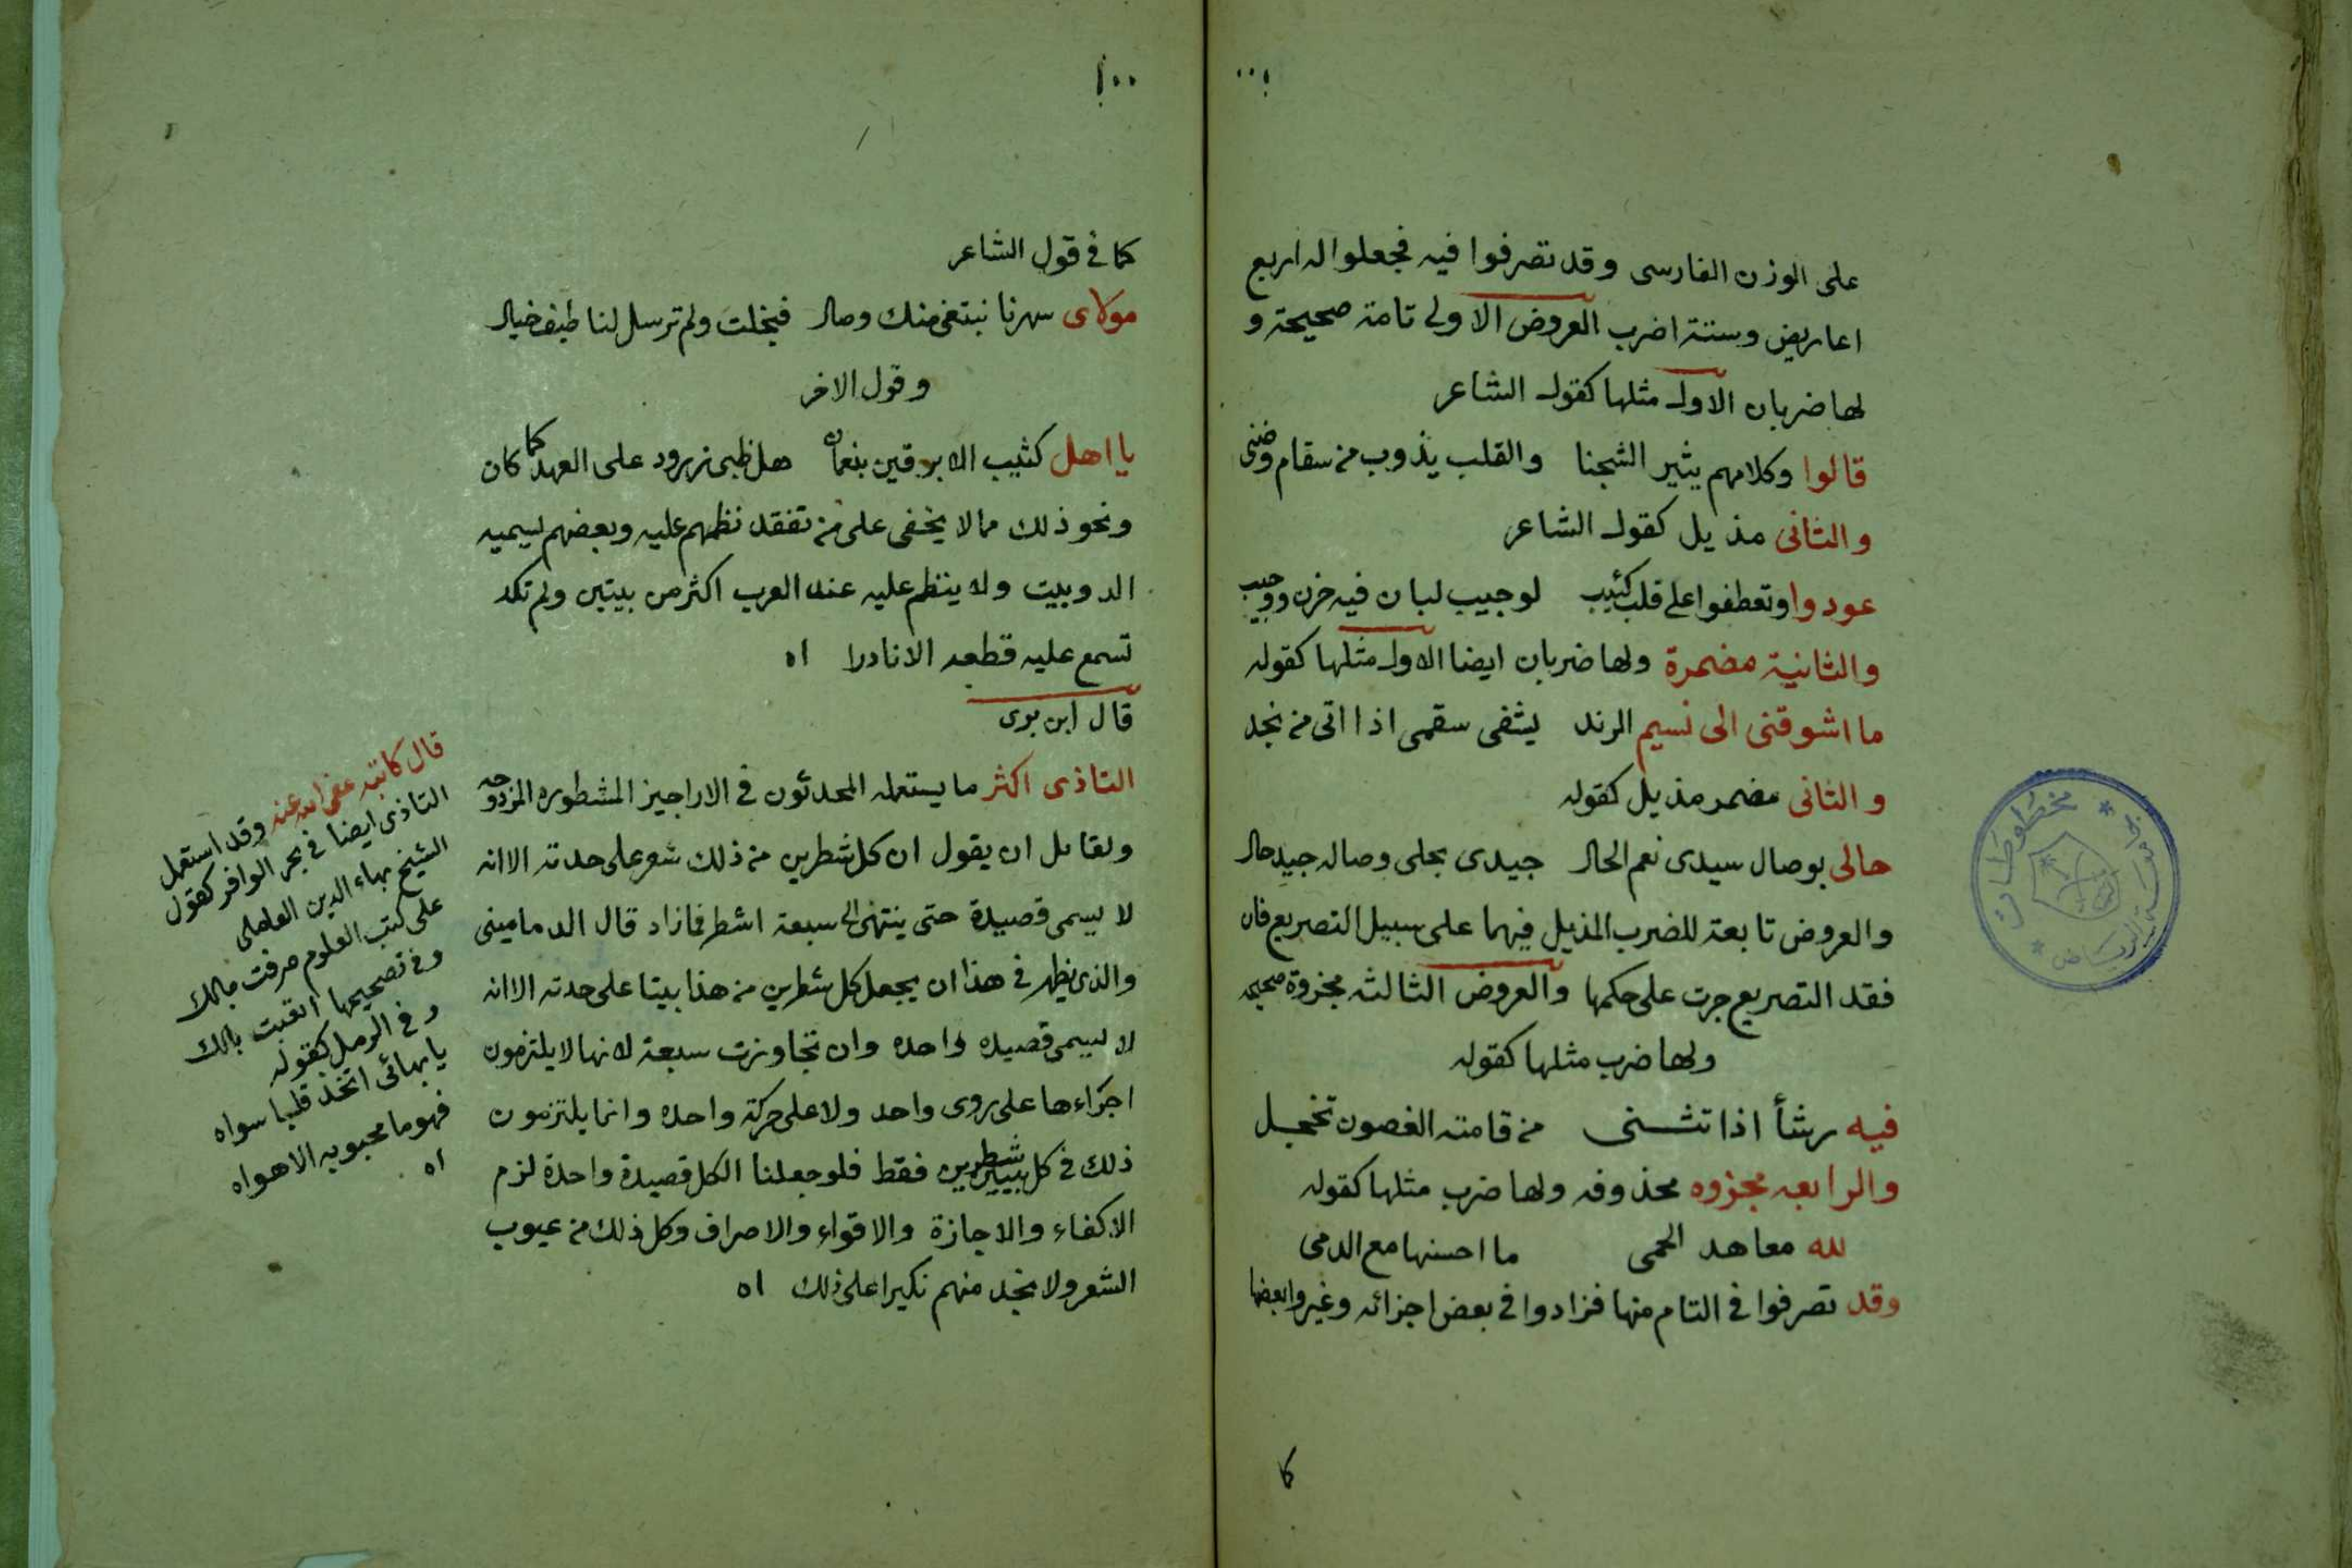 على الوزن الفارسى وقد تصرفوا فيه فجعلوا له اربع
اعاريض وستة اضرب العروض الاولى تامة صحيحة و
لها ضربان الاول مثلها كقول الشاعر
قالوا وكلامهم يثير الشجنا والقلب يذوب من سقام وضنى
والثانى مذيل كقول الشاعر
عودوا وتعطفوا على قلب كئيب لوجيب لبان فيه حزن ووجيب
والثانية مضمرة ولها ضربان ايضا الاول مثلها كقوله
ما اشوقنى الى نسيم الرند يشفى سقمى اذا اتى من نجد
والثانى مضمر مذيل كقوله
حالى بوصال سيدى نعم الحال جيدى بحلى وصاله جيد حال
والعروض تابعة للضرب المذيل فيهما على سبيل التصريع فان
فقد التصريع جرت على حكمها والعروض الثالثه مجزوة صحيحه
ولها ضرب مثلها كقوله
فيه رشأ اذا تثنى من قامته الغصون تخجل
والرابعه مجزوه محذوفه ولها ضرب مثلها كقوله
لله معاهد الحمى ما احسنها مع الدمى
وقد تصرفوا فى التام منها فزادوا فى بعض اجزائه وغيروا بعضها
كما
كما فى قول الشاعر
مولاى سهرنا نبتغى منك وصال فبخلت ولم ترسل لنا طيف خيال
وقول الاخر
يا اهل كثيب الابرقين بنعمان هل ظبى زرود على العهد كما كان
ونحو ذلك مما لا يخفى على من تفقد نظمهم عليه وبعضهم يسميه
الدوبيت ولا ينظم عليه عند العرب اكثر من بيتين ولم تكد
تسمع عليه قطعه الا نادرا اه
قال ابن برى
التاذى اكثر ما يستعمله المحدثون فى الاراجيز المشطوره المزدوجه
ولقائل ان يقول ان كل شطرين من ذلك شعر على حدته الا انه
لا يسمى قصيدة حتى ينتهى الى سبعة اشطر فمازاد قال الدمامينى
والذى يظهر فى هذا ان يجعل كل شطرين من هذا بيتا على حدته الا انه
لا يسمى قصيده واحده وان تجاوزت سبعة لانها لا يلتزمون
اجزاءها على روى واحد ولا على حركة واحده وانما يلتزمون
ذلك فى كل شطرين فقط فلو جعلنا الكل قصيدة واحدة لزم
الاكفاء والاجازة والاقواء والاصراف وكل ذلك من عيوب
الشعر ولا نجد منهم نكيرا على ذلك اه
قال كاتبه عفى الله عنه وقد استعمل
التاذى ايضا فى بحر الوافر كقول
الشيخ بهاء الدين العاملى
على كتب العلوم صرفت مالك
وفى تصحيحها اتعبت بالك
وفى الرمل كقوله
يا بهائى اتخذ قلبا سواه
فهو ما محبوبه الا هواه
اه
مخطوطات
الرياض